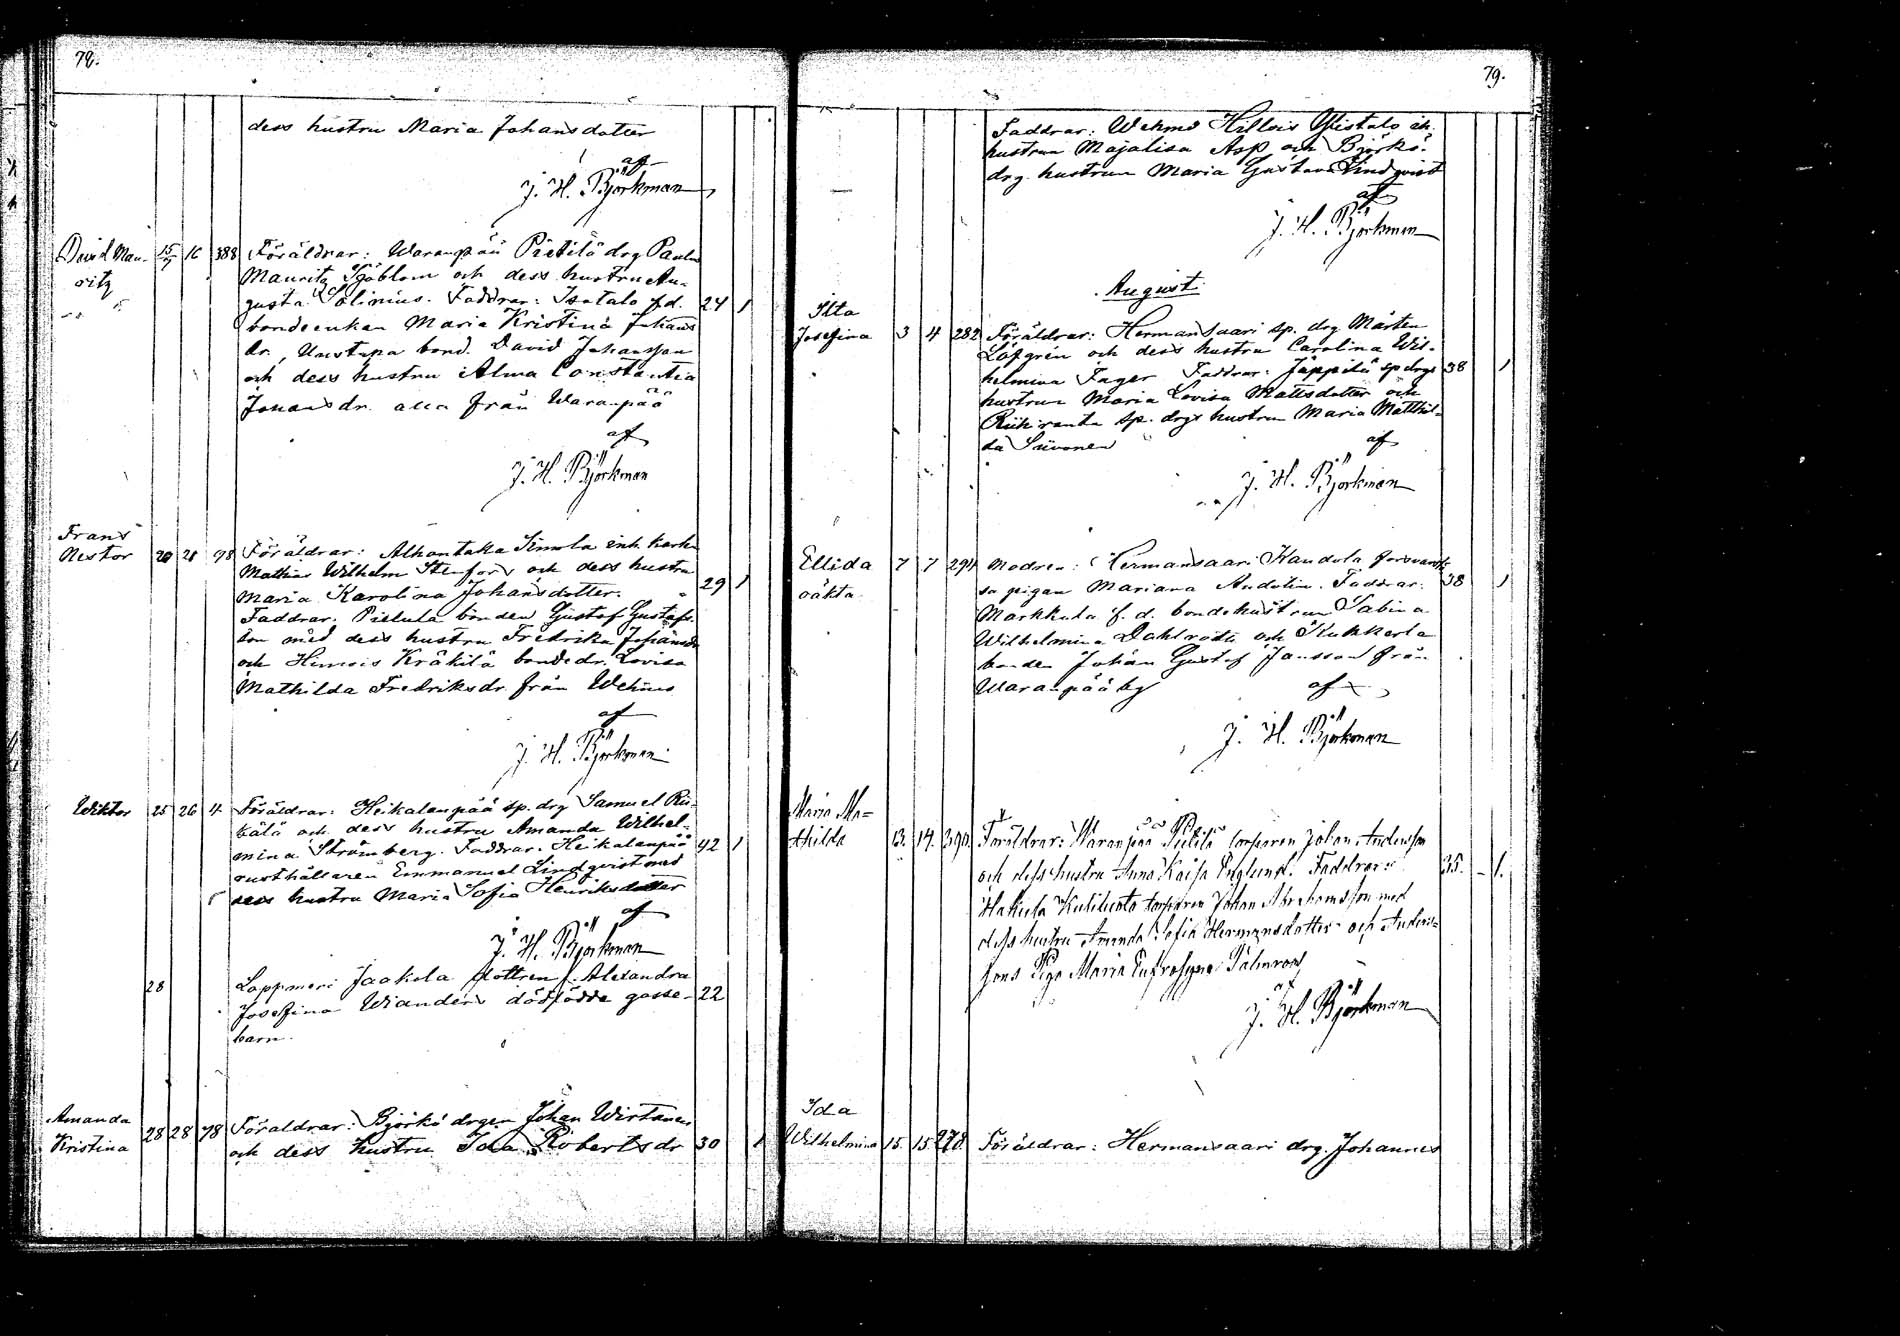 78.
dess hustru Maria Johansdotter
af
J. H. Björkman
David Mau- 15/7 16 388 Föräldrar: Waranpää Pietilä drg Paulus
ritz Mauritz Sjöblom och dess hustru Au-
gusta Salinius. Faddrar: Isotalo f.d. 24 1
bondeenkan Maria Kristina Johans
dr., Unstupa bond. David Johansson
och dess hustru Alma Constantia
Johansdr. alla från Waranpää
af
J. H. Björkman
Frans
Nestor 20 28 78 Föräldrar: Alhontaka Simola inh. karln
Mathias Wilhelm Stenfors och dess hustru
Maria Karolina Johansdotter. 29 1
Faddrar: Pietula bonden Gustaf Gustafs-
son med dess hustru Fredrika Johansdr
och Himois Kräkilä bondedr. Lovisa
Mathilda Fredriksdr. från Wehmo
af
J. H. Björkman
Wiktor 25 26 4 Föräldrar: Heikalanpää sp. drg Samuel Rii-
kälä och dess hustru Amanda Wilhel-
mina Strömberg. Faddrar: Heikalanpää 42 1
rusthållaren Emmanuel Lindqvist med
dess hustru Maria Sofia Henriksdotter
af
J. H. Björkman
28 Lappmeri Jaakola dottren f. Alexandra
Josefina Wianders dödfödde gosse- 22
barn.
Amanda
Kristina 28 28 78 Föräldrar: Björkö drgen Johan Wirtanen
och dess hustru Ida Robertsdr 30 1
79.
Faddrar: Wehmo Hillois Ylistalo
hustrun Majalisa Asp och Björkö
drg. hustrun Maria Gustava Lindqvist
af
J. H. Björkman
August
Ilta
Josefina 3 4 282 Föräldrar: Hermansaari sp. drg Mårten
Löfgrén och dess hustru Carolina Wil-
helmina Fager Faddrar: Jäppilä sp drgs 38 1
hustrun Maria Lovisa Mattsdotter och
Riikiranta sp. drgs hustrun Maria Matthil-
da Siivonen af
J. H. Björkman
Ellida 7 7 294 Modren: Hermansaari Kandola försvarslö
oäkta sa pigan Mariana Andelin. Faddrar: 38 1
Markkula f. d. bondehustrun Sabina
Wilhelmina Dahlroth och Kukkerla
bonden Johan Gustaf Jansson från
Waranpää by af
J. H. Björkman
Maria Ma-
thilda 13. 14. 390. Föräldrar: Waranpää Pietilä torparen Johan Andersson
och dess hustru Anna Kaisa Englund. Faddrar: 35. 1.
Hakula Kulibusto torparen Johan Abrahamsson med
dess hustru Amanda Sofia Hermansdotter och Anders-
sons Piga Maria Eufrosyne Palmroos
af
J. H. Björkman
Ida
Wilhelmina 15. 15. 278. Föräldrar: Hermansaari drg. Johannes